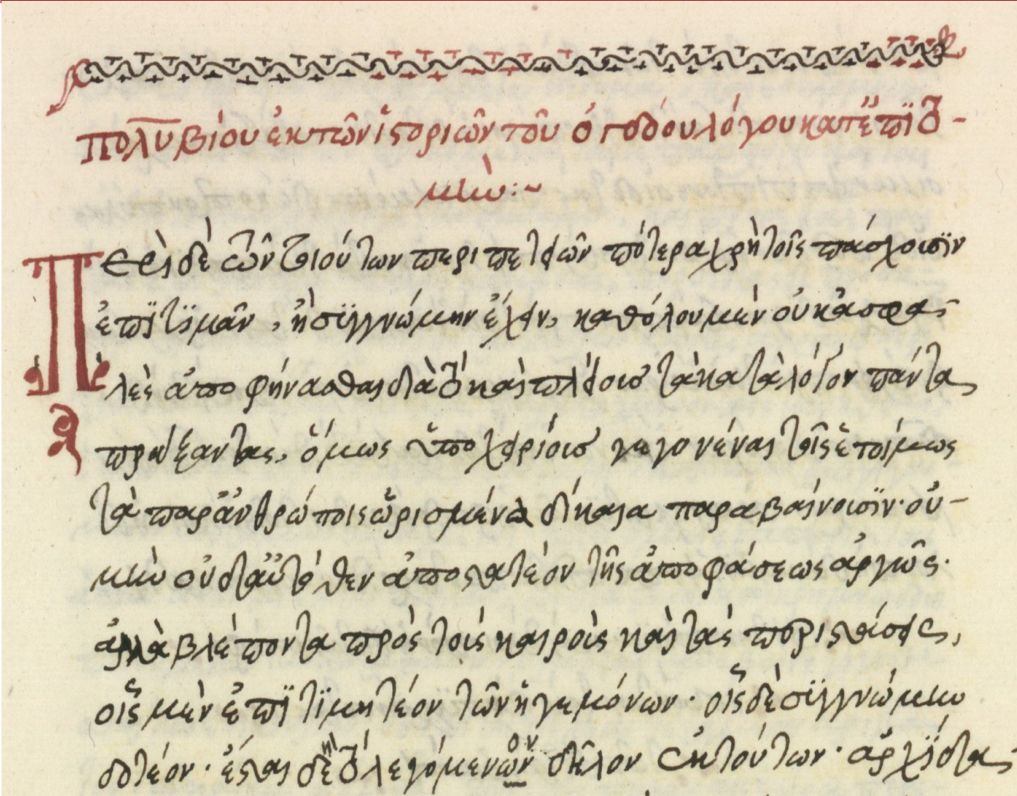 πολυβίου ἐκ τῶν ἱστοριῶν τοῦ ὀγδόου λόγου κατ' ἐπϊτο-
μὴν:~
Περὶ δὲ τῶν τοιούτων περιπετειῶν πότερα χρὴ τοῖς πάσχουσϊν
ἐπϊτϊμᾶν, ἢ σϋγγνώμην ἔχειν, καθόλου μὲν οὐκ ἀσφα-
λὲς ἀποφήνασθαι διὰ τὸ καὶ πλείους τὰ κατὰ λόγον πάντα
πράξαντας, ὅμως ὑποχειρίους γεγονέναι τοῖς ἑτοίμως
τὰ παρ' ἀνθρώποις ὡρισμένα δίκαια παραβαίνουσϊν· οὐ-
μὴν οὐδ' αὐτόθεν ἀποστατέον τῆς ἀποφάσεως ἀργῶς·
ἀλλὰ βλέποντα πρὸς τοὺς καιροὺς καὶ τὰς περιστάσεις,
οἷς μὲν ἐπϊτϊμητέον τῶν ἡγεμόνων· οἷς δὲ σϋγγνώμην
δοτέον· ἔσται δὲ τὸ λεγόμενον δῆλον ἐκ τούτων· ἀρχΐδα